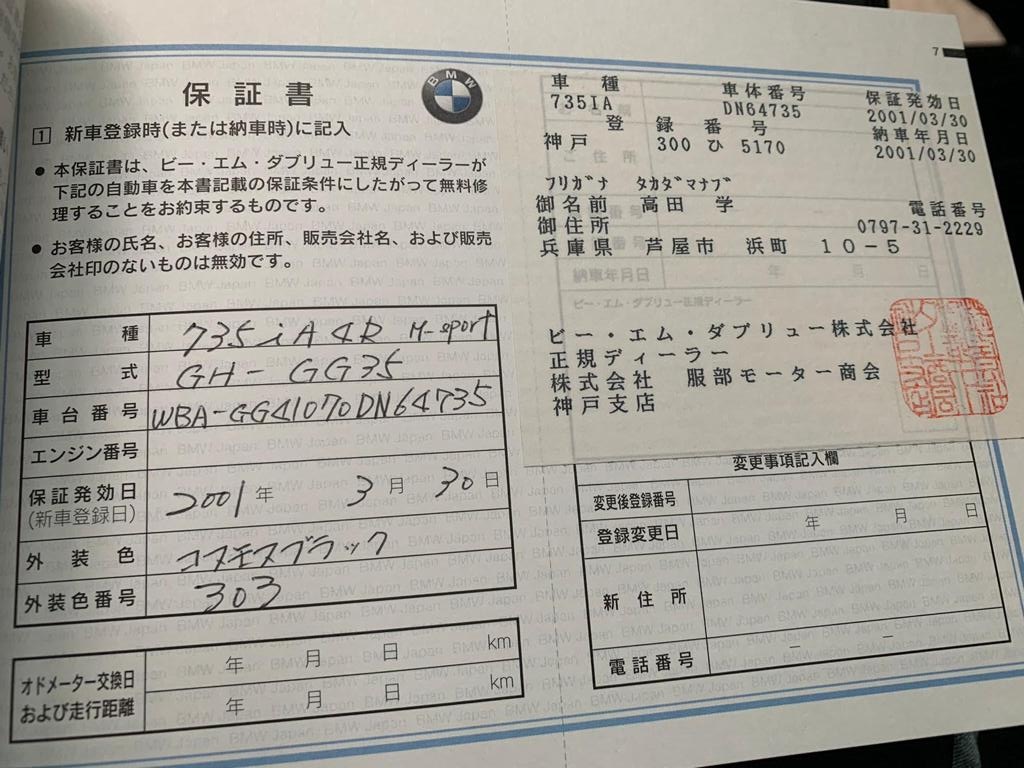 7
保証書
BMW
1 新車登録時(または納車時)に記入
● 本保証書は、ビー・エム・ダブリュー正規ディーラーが
下記の自動車を本書記載の保証条件にしたがって無料修
理することをお約束するものです。
● お客様の氏名、お客様の住所、販売会社名、および販売
会社印のないものは無効です。
車種 735iA 4R M-sport
型式 GH-GG35
車台番号 WBA-GG41070DN64735
エンジン番号
保証発効日 2001年 3月 30日
(新車登録日)
外装色 コスモスブラック
外装色番号 303
オドメーター交換日 年 月 日 km
および走行距離 年 月 日 km
車種 車体番号 保証発効日
735IA DN64735 2001/03/30
登録番号 納車年月日
神戸 300 ひ 5170 2001/03/30
フリガナ タカダマナブ
御名前 高田 学 電話番号
御住所 0797-31-2229
兵庫県 芦屋市 浜町 10-5
納車年月日 年 月 日
ビー・エム・ダブリュー正規ディーラー
ビー・エム・ダブリュー株式会社
正規ディーラー
株式会社 服部モーター商会
神戸支店
変更事項記入欄
変更後登録番号
登録変更日 年 月 日
新住所
電話番号 － －